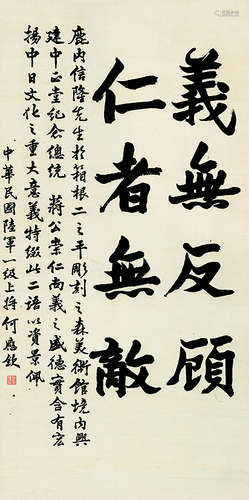 義無反顧
仁者無敵
鹿内信隆先生於箱根二之平彫刻之森美術館境內興
建中正堂紀念總統 蔣公崇仁尚義之盛德實含有宏
揚中日文化之重大意義特綴此二語以資景佩
中華民國陸軍一級上將何應欽